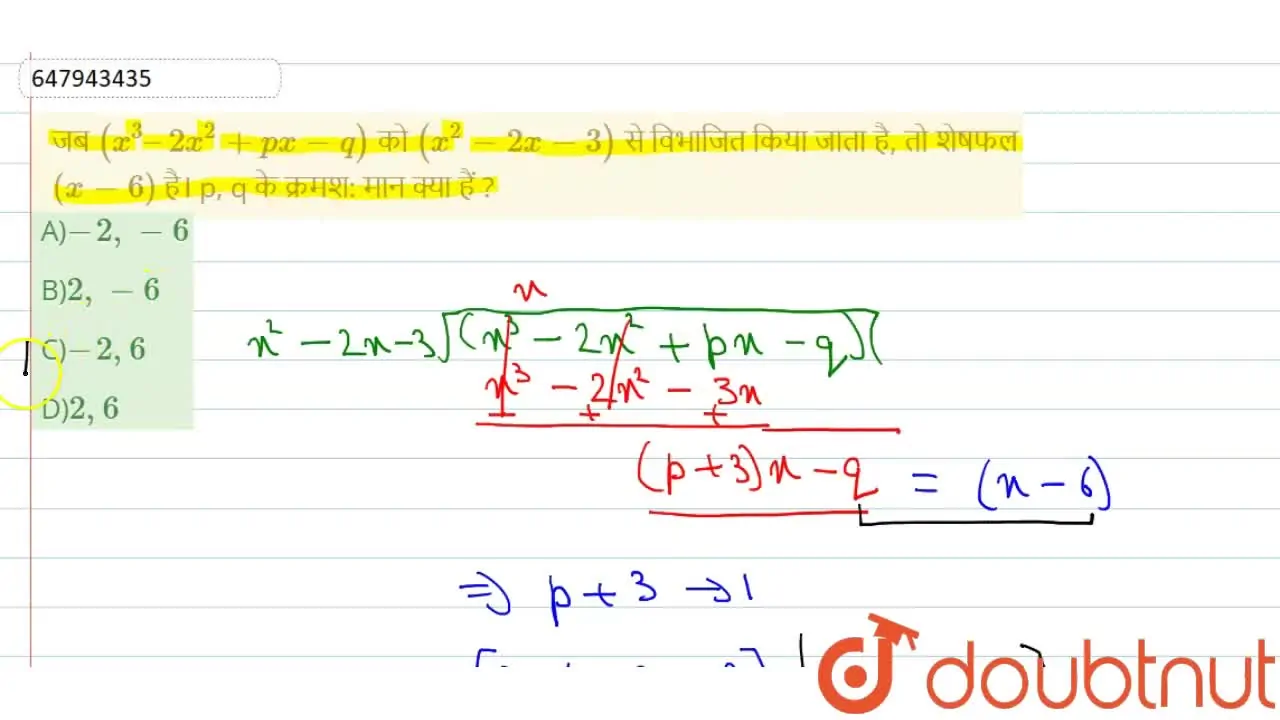 647943435
जब (x³ – 2x² + px – q) को (x² – 2x – 3) से विभाजित किया जाता है, तो शेषफल
(x – 6) है। p, q के क्रमश: मान क्या हैं ?
A)–2, –6
B)2, –6
C)–2, 6
D)2, 6
x
x² – 2x – 3 (x³ – 2x² + px – q) (
x³ – 2x² – 3x
– + +
(p+3)x – q = (x – 6)
⇒ p + 3 → 1
doubtnut